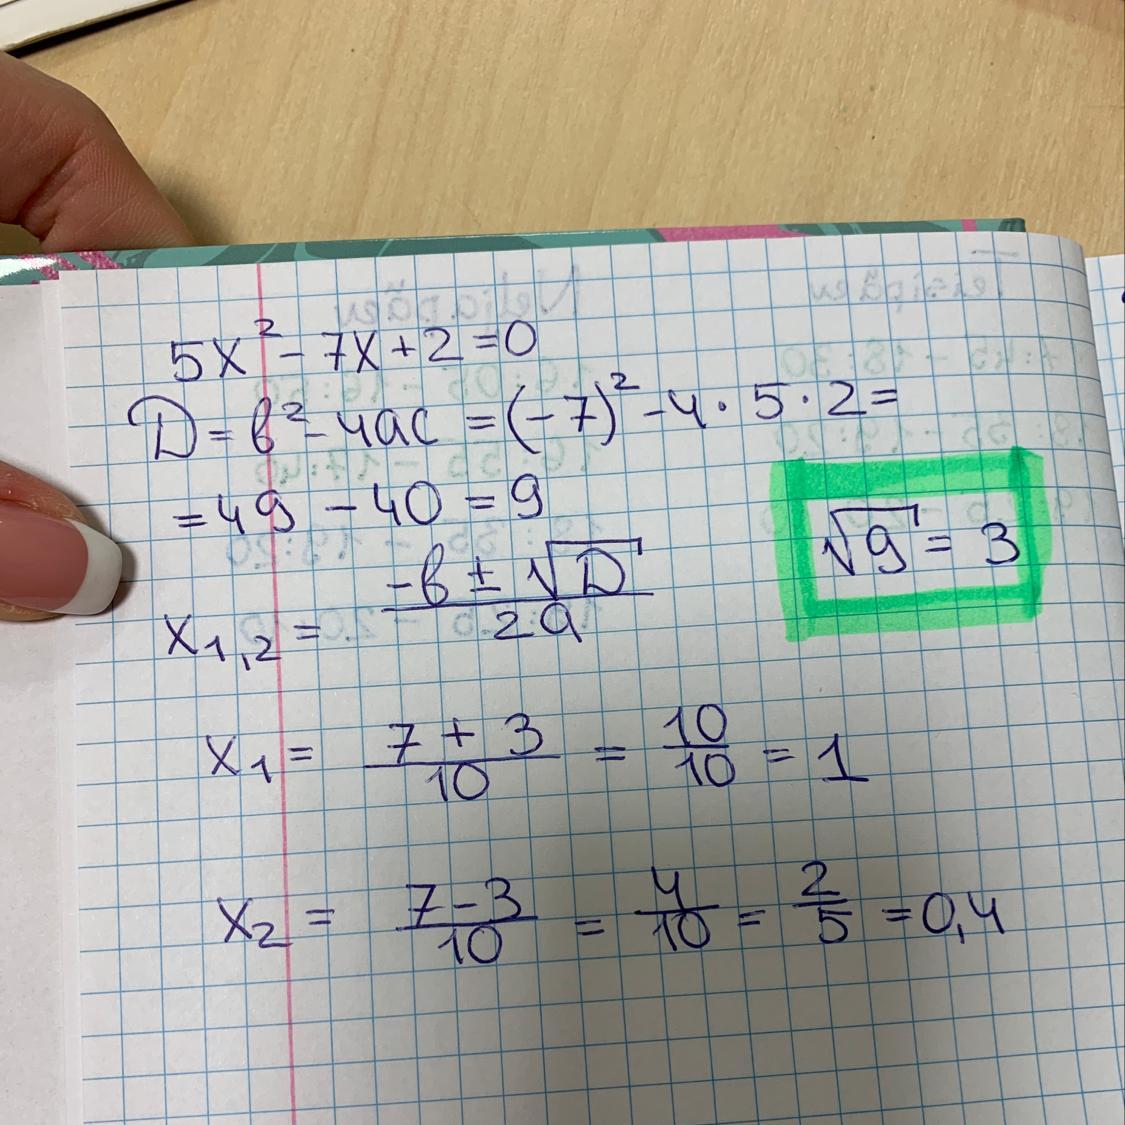 5x² - 7x + 2 = 0
D = b² - 4ac = (-7)² - 4 · 5 · 2 =
= 49 - 40 = 9
√9 = 3
x₁,₂ = (-b ± √D) / 2a
x₁ = (7 + 3) / 10 = 10/10 = 1
x₂ = (7 - 3) / 10 = 4/10 = 2/5 = 0,4